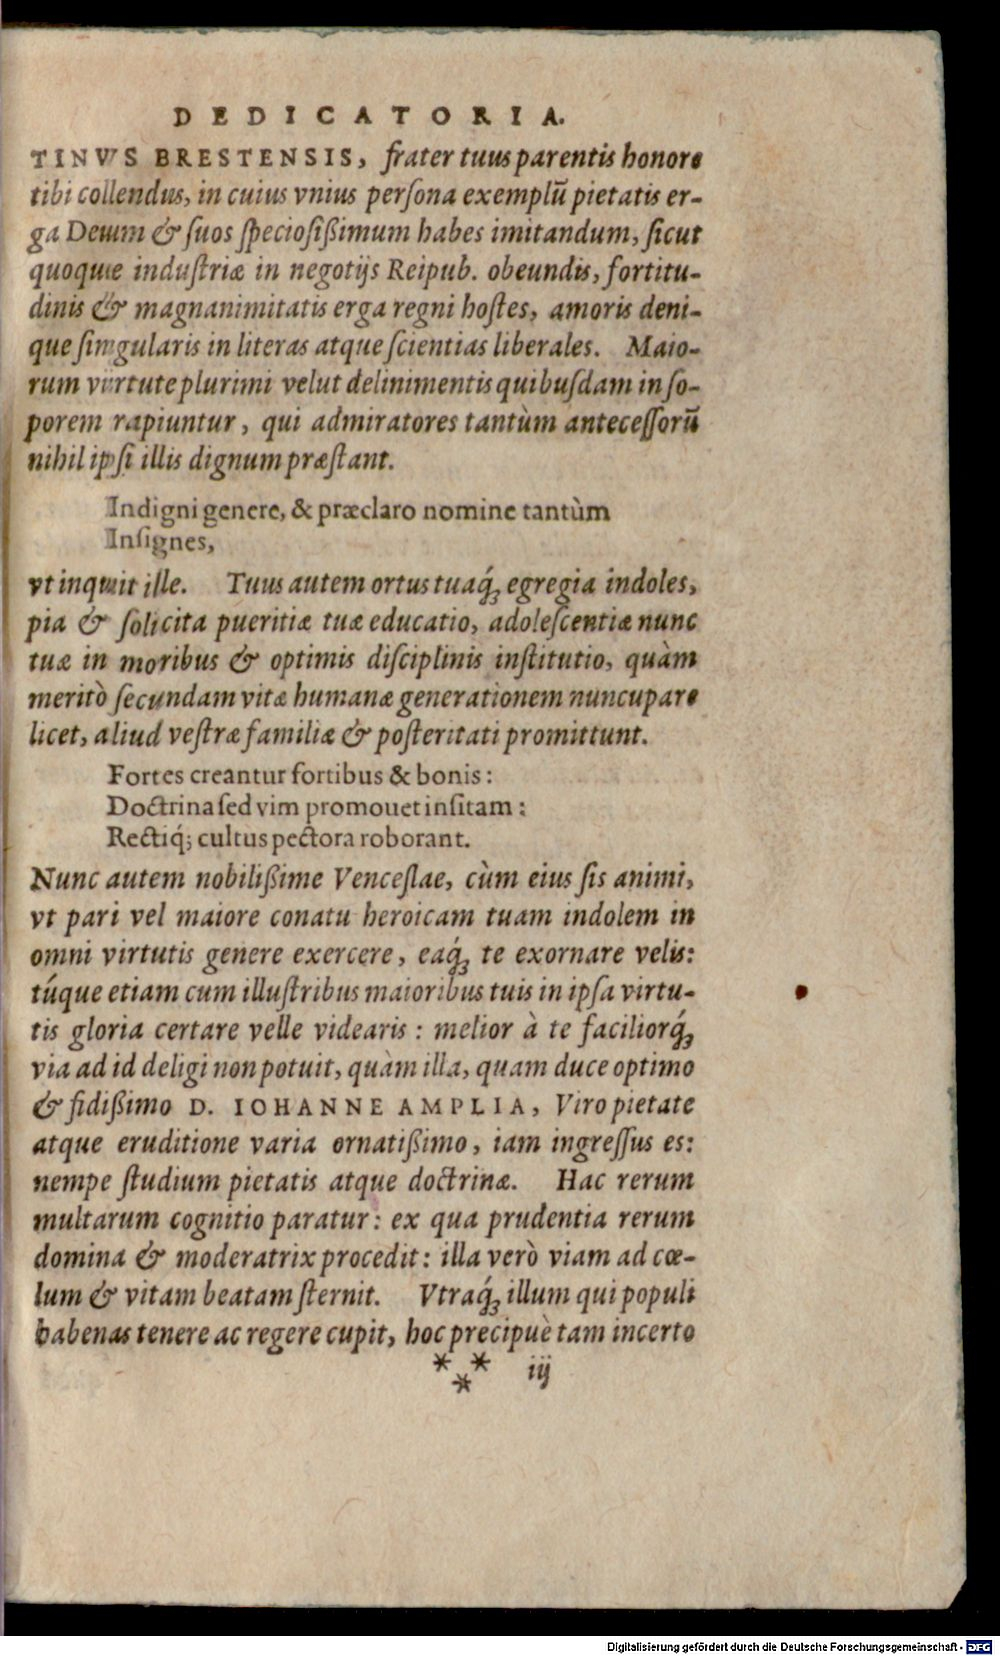 DEDICATORIA.
TINVS BRESTENSIS, frater tuus parentis honore
tibi collendus, in cuius vnius persona exemplū pietatis er-
ga Deum & suos speciosißimum habes imitandum, sicut
quoque industriæ in negotijs Reipub. obeundis, fortitu-
dinis & magnanimitatis erga regni hostes, amoris deni-
que singularis in literas atque scientias liberales. Maio-
rum virtute plurimi velut delinimentis quibusdam in so-
porem rapiuntur, qui admiratores tantùm antecessorū
nihil ipsi illis dignum præstant.
Indigni genere, & præclaro nomine tantùm
Insignes,
vt inquit ille. Tuus autem ortus tuaq́; egregia indoles,
pia & solicita pueritiæ tuæ educatio, adolescentiæ nunc
tuæ in moribus & optimis disciplinis institutio, quàm
meritò secundam vitæ humanæ generationem nuncupare
licet, aliud vestræ familiæ & posteritati promittunt.
Fortes creantur fortibus & bonis:
Doctrina sed vim promouet insitam:
Rectiq́; cultus pectora roborant.
Nunc autem nobilißime Venceslae, cùm eius sis animi,
vt pari vel maiore conatu heroicam tuam indolem in
omni virtutis genere exercere, eaq́; te exornare velis:
túque etiam cum illustribus maioribus tuis in ipsa virtu-
tis gloria certare velle videaris: melior à te faciliorq́;
via ad id deligi non potuit, quàm illa, quam duce optimo
& fidißimo D. IOHANNE AMPLIA, Viro pietate
atque eruditione varia ornatißimo, iam ingressus es:
nempe studium pietatis atque doctrinæ. Hac rerum
multarum cognitio paratur: ex qua prudentia rerum
domina & moderatrix procedit: illa verò viam ad cœ-
lum & vitam beatam sternit. Vtraq́; illum qui populi
habenas tenere ac regere cupit, hoc precipuè tam incerto
*** iij
Digitalisierung gefördert durch die Deutsche Forschungsgemeinschaft - DFG